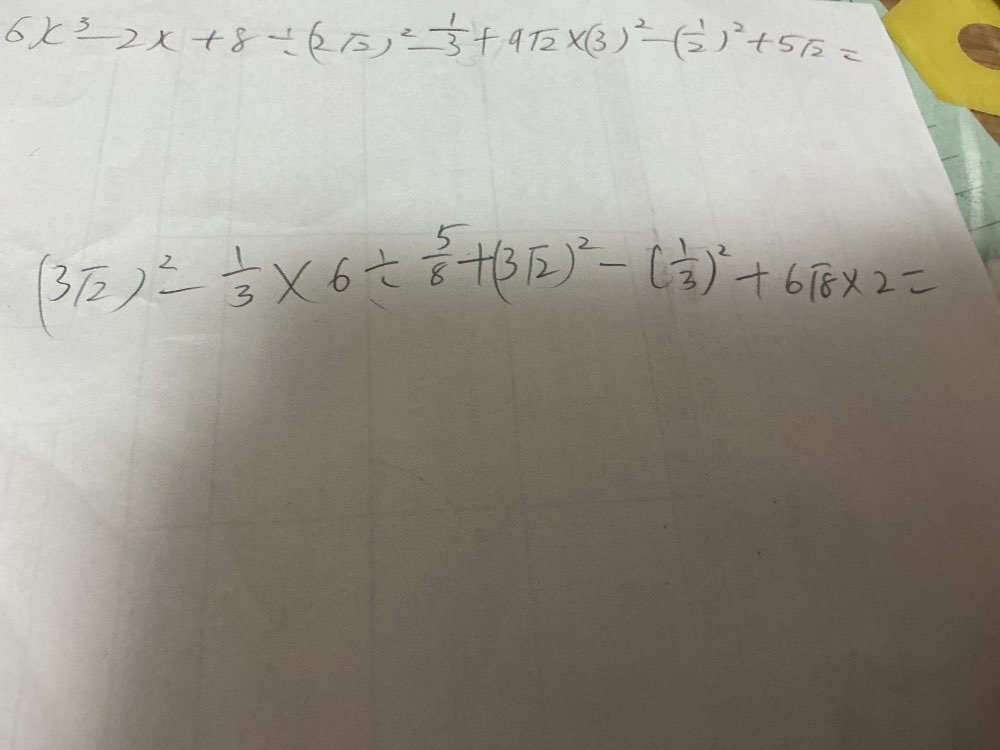 6x³-2x+8÷(2√2)²-1/3+9√2×(3)²-(1/2)²+5√2=
(3√2)²-1/3×6÷5/8+(3√2)²-(1/3)²+6√8×2=